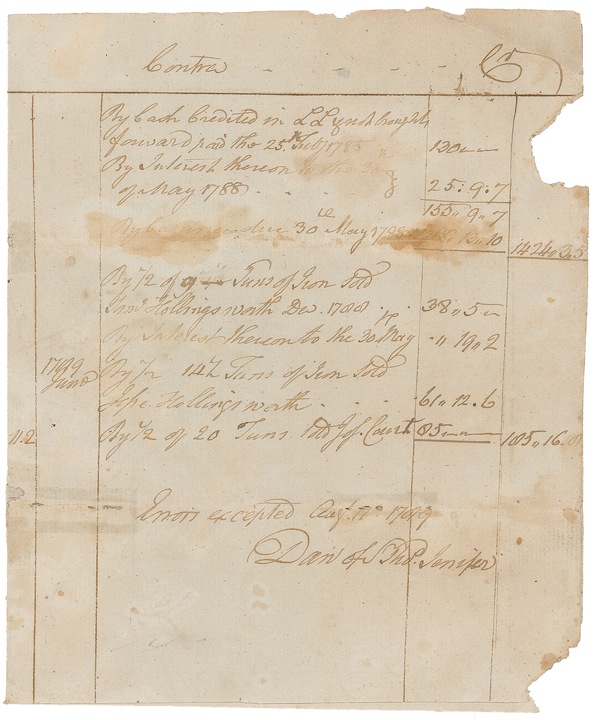 Contra - - - Cr
By Cash Credited in L Lynch bought
forward paid the 25th Feby 1785 120 " "
By Interest thereon to the 30
of May 1788 - - 25 : 9 : 7
155 " 9 " 7
By due 30th May 1788 13 " 10 1424 " 3,5
By 1/2 of 9 Tuns of Iron Sold
Saml Hollingsworth Dec. 1788 - - 38 " 5 "
By Interest thereon to the 30 May " 19 " 2
1789 By 1/2 14 1/2 Tuns of Iron Sold
June
Jesse Hollingsworth - - - 61 " 12 . 6
11.2 By 1/2 of 20 Tuns Sold Jos. Court 85 " " 185 " 16
Errors excepted Augt 17th 1789
Dan of St Tho. Jenifer